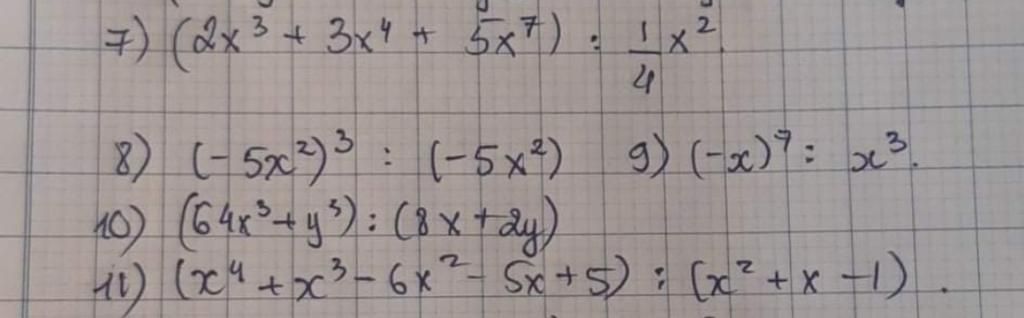 7) (2x³ + 3x⁴ + 5x⁷) : 1/4 x²
8) (-5x²)³ : (-5x²) 9) (-x)⁷ : x³.
10) (64x³+y³) : (8x+2y)
11) (x⁴+x³-6x²-5x+5) : (x²+x-1).